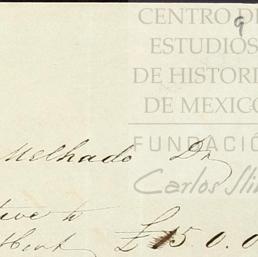 9
CENTRO DE
ESTUDIOS
DE HISTORI
DE MEXICO
FUNDACIÓ
Carlos Sli
Melhado Dr
tive to
£15.0.0